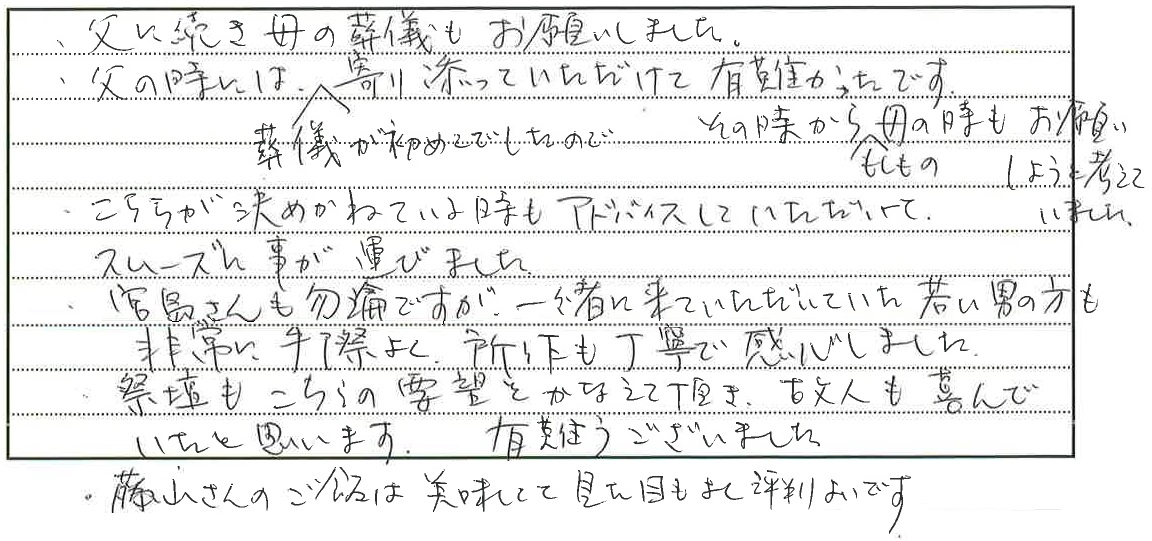 ・父に続き母の葬儀もお願いしました。
・父の時には、寄り添っていただけて有難かったです。
葬儀が初めてでしたので
その時から母の時もお願い
もしもの
しようと考えて
いました。
・こちらが決めかねている時もアドバイスしていただいて、
スムーズに事が運びました。
・宮島さんも勿論ですが、一緒に来ていただいていた若い男の方も
非常に手際よく、所作も丁寧で感心しました。
・祭壇もこちらの要望をかなえて頂き、故人も喜んで
いたと思います。 有難うございました
・藤山さんのご飯は美味しくて見た目もよく評判よいです